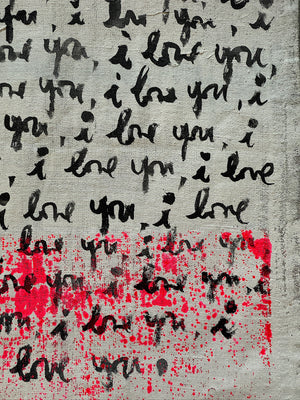 i love you, i
you, i love you,
you, i love you, i
you, i love you, i
love you, i love
i love you, i love
love you, i love you
love you, i love you, i
you, i love you, i
love you.